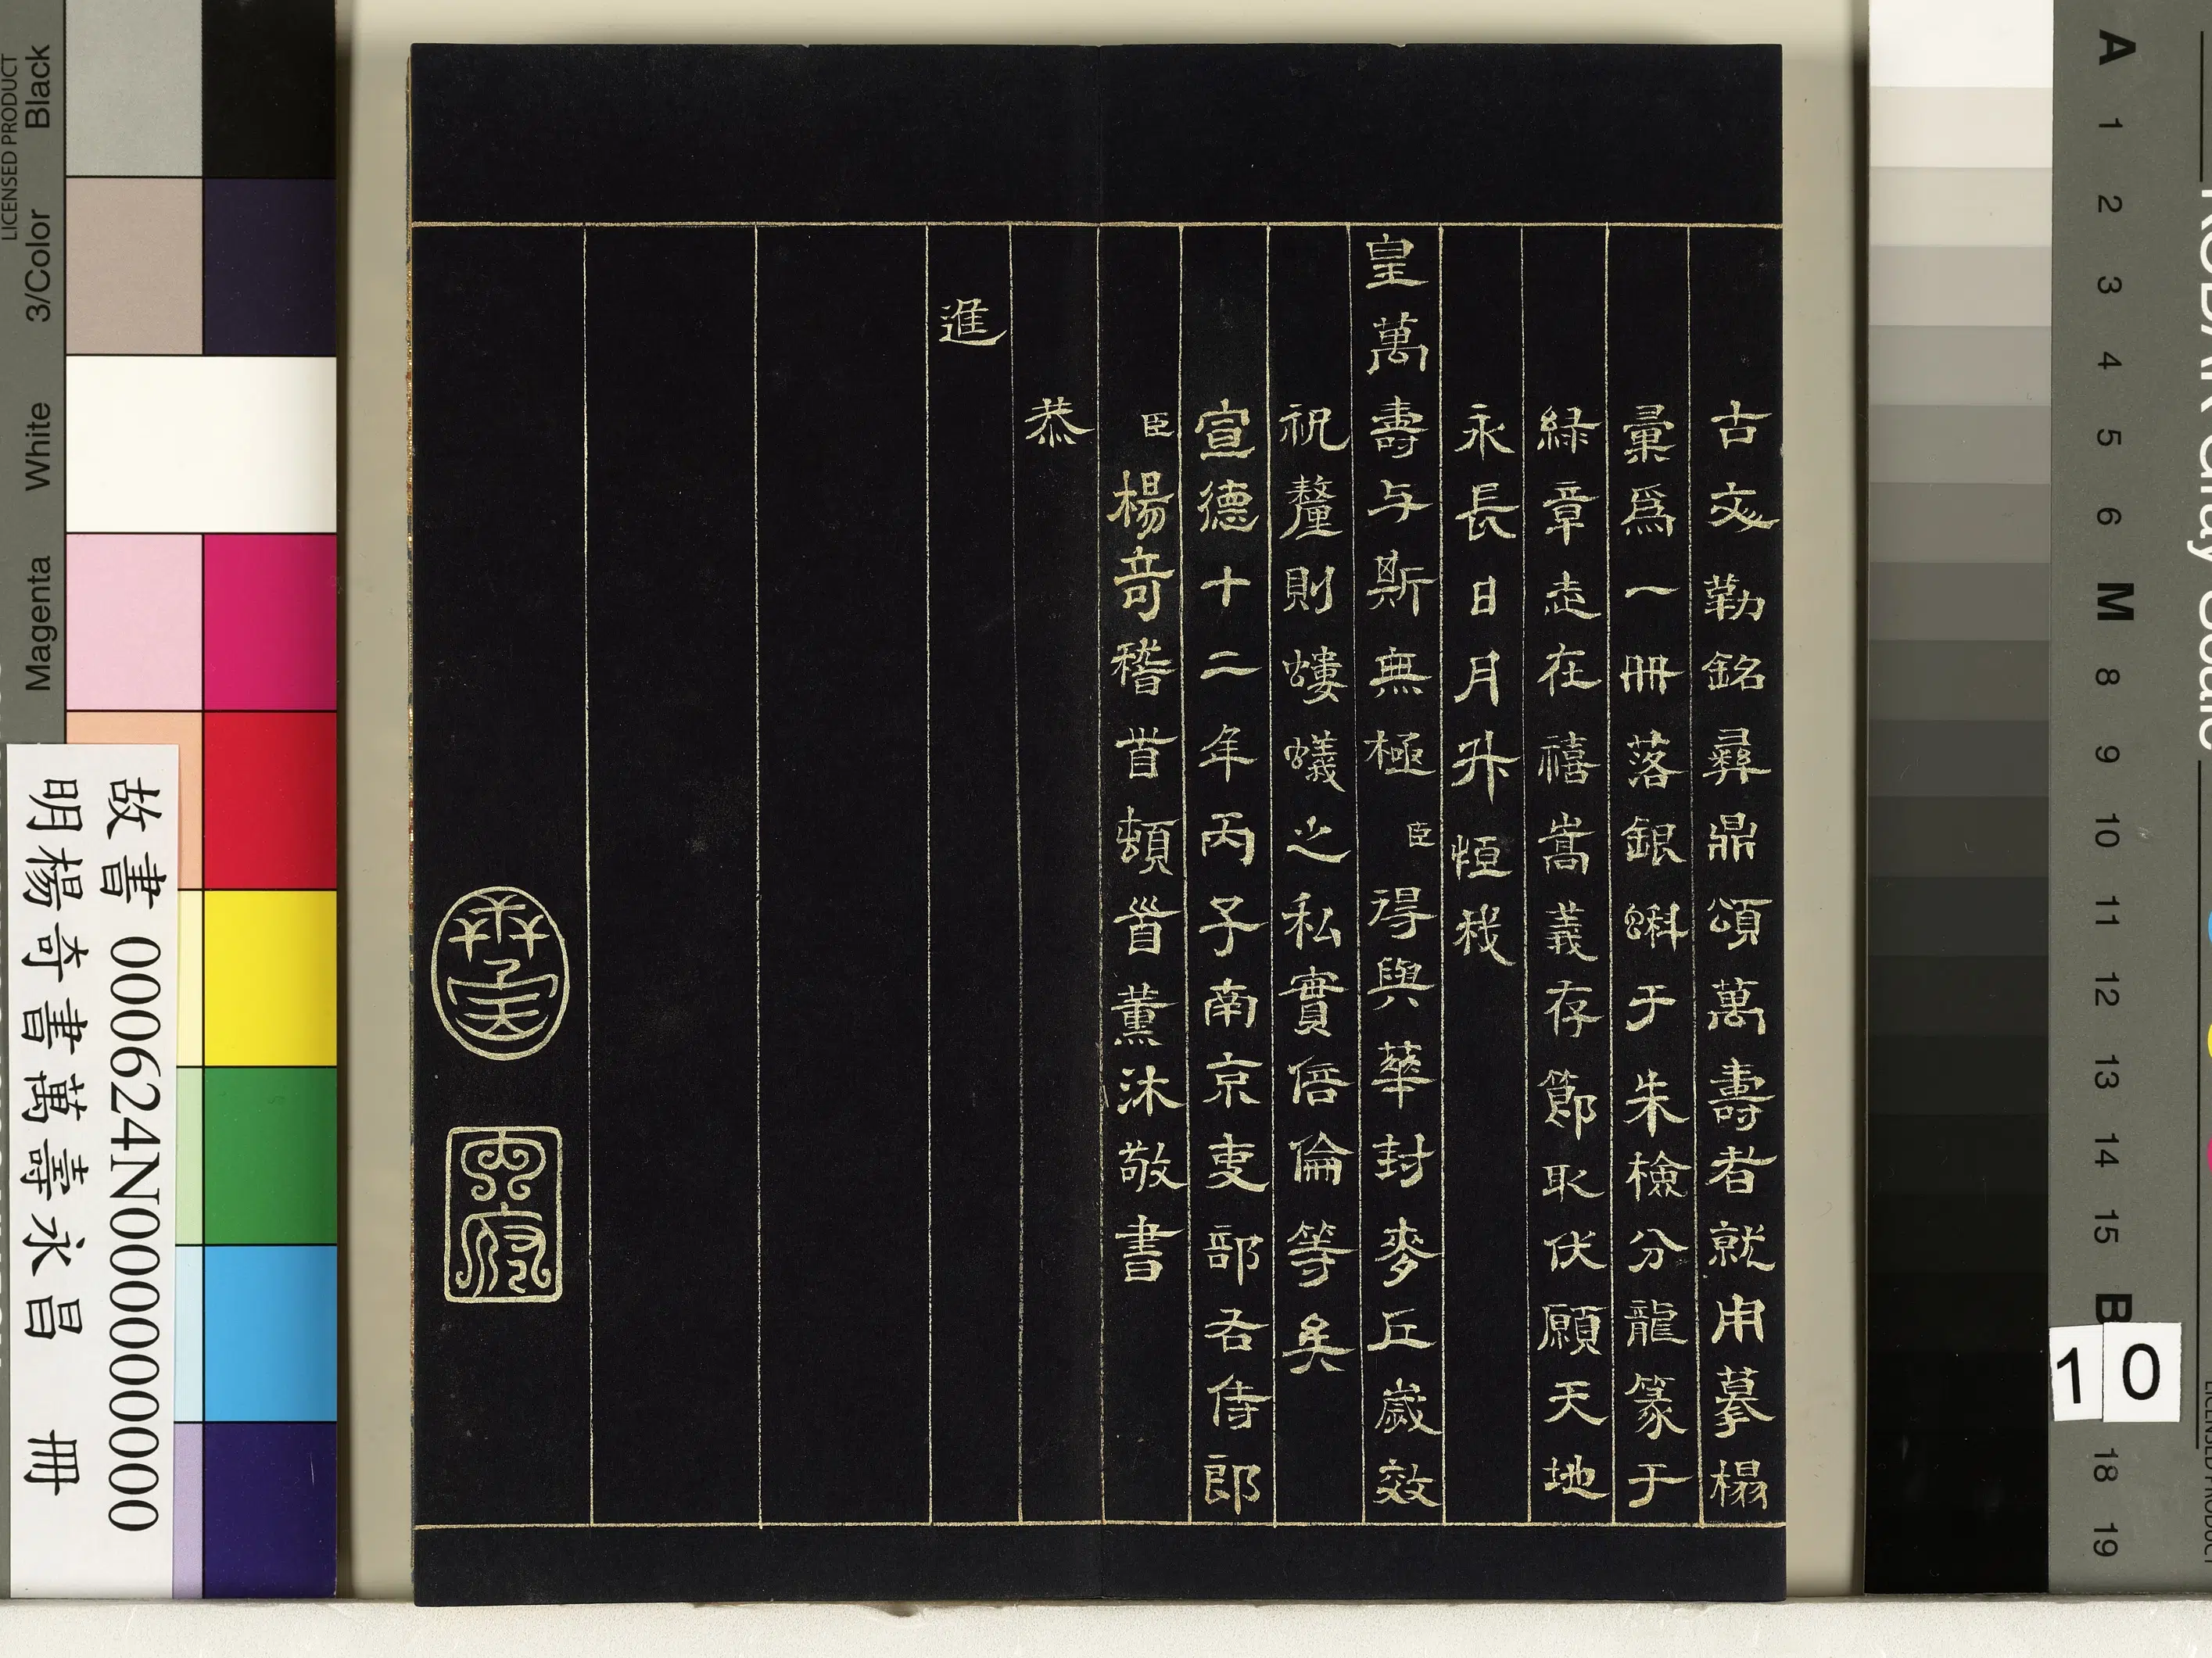 古文勒銘彞鼎頌萬壽者就用摹榻
彙爲一冊落銀蝌于朱檢分龍篆于
綠章走在禧嵩義存節取伏願天地
永長日月升恒我
皇萬壽与斯無極臣得與華封麥丘歲效
祝釐則螻蟻之私實倍倫等矣
宣德十二年丙子南京吏部右侍郎
臣楊竒稽首頓首薰沐敬書
恭
進
故書 000624N000000000
明楊奇書萬壽永昌 冊
LICENSED PRODUCT
Black
3/Color
White
Magenta
A
1
2
3
4
5
6
M
8
9
10
11
12
13
14
15
B
10
18
19